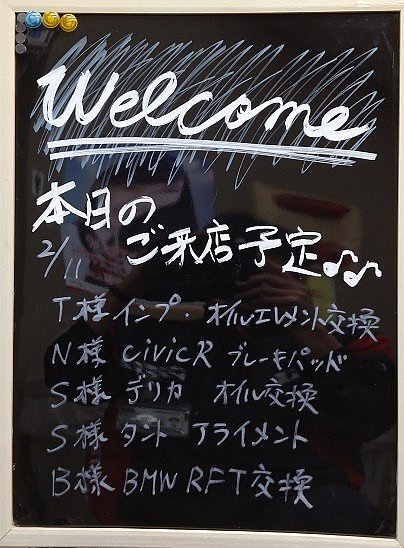 Welcome
本日の
2/11 ご来店予定♪♫
T様 インプ. オイルエレメント交換
N様 civicR ブレーキパッド
S様 デリカ オイル交換
S様 タント アライメント
B様 BMW RFT交換